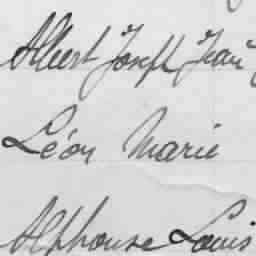 Albert Joseph Jean
Léon Marie
Alphonse Louis